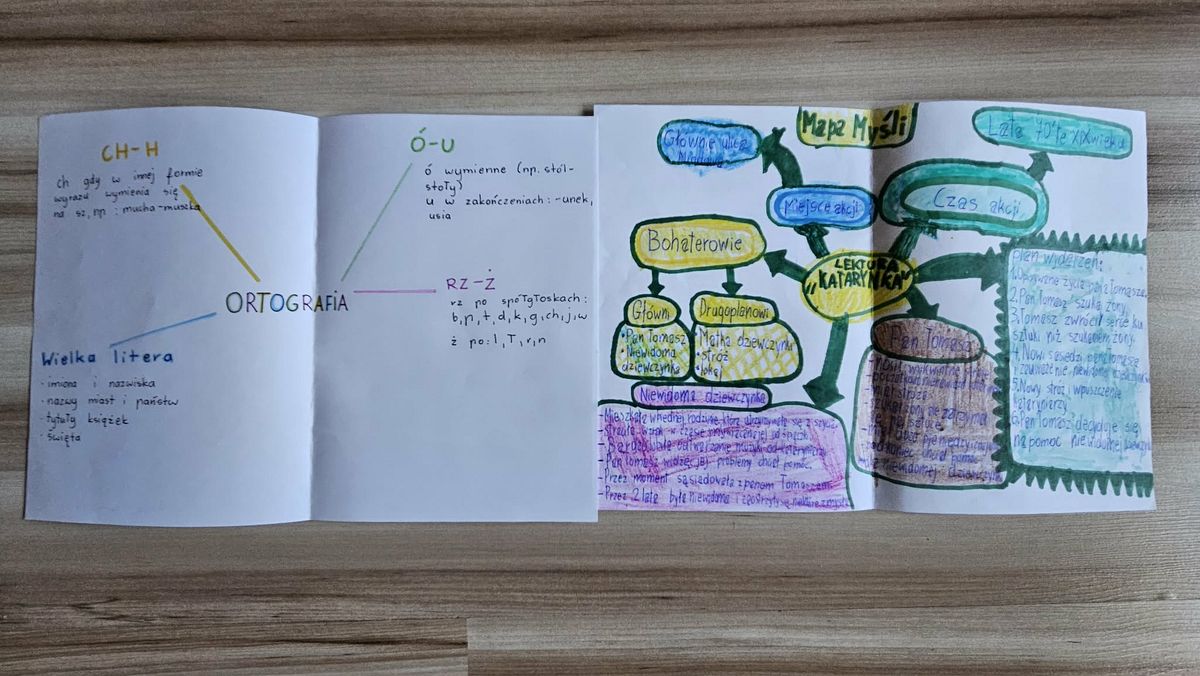 CH-H
ch gdy w innej formie
wyrazu wymienia się
na sz, np.: mucha-muszka
Ó-U
ó wymienne (np. stól-
stoły)
u w zakończeniach: -unek,
usia
ORTOGRAFIA
RZ-Ż
rz po spółgłoskach:
b, p, t, d, k, g, ch, j, w
ż po: l, ł, r, n
Wielka litera
· imiona i nazwiska
· nazwy miast i państw
· tytuły książek
· święta
Mapa Myśli
Głównie ulica
Miodowa
Miejsce akcji
Lata 70'te XIX wieku
Czas akcji
LEKTURA
"KATARYNKA"
Bohaterowie
Główni
• Pan Tomasz
• Niewidoma
dziewczynka
Drugoplanowi
• Matka dziewczynki
• stróż
• lokaj
Niewidoma dziewczynka
- Mieszkała w biednej rodzinie, która utrzymywała się z szycia
- Straciła wzrok w czasie
- Bardzo lubiła odtwarzanie muzyki od kataryniarzy
- Pan Tomasz widząc jej problemy chciał pomóc
- Przez moment sąsiadowała z panem Tomaszem
- Przez 2 lata była niewidoma i zaostrzyły się niektóre zmysły
Pan Tomasz
pod koniec chciał pomóc
niewidomej dziewczynce
plan wydarzeń:
1. Opisywane życia pana Tomasza
2. Pan Tomasz szuka żony
3. Tomasz zwrócił serce ku
sztuki niż szukaniem żony
4. Nowi sąsiedzi pana Tomasza
i zauważenie niewidomej dziewczynki
5. Nowy stróż i wpuszczenie
kataryniarzy
6. Pan Tomasz decyduje się
na pomoc niewidomej dziewczynce